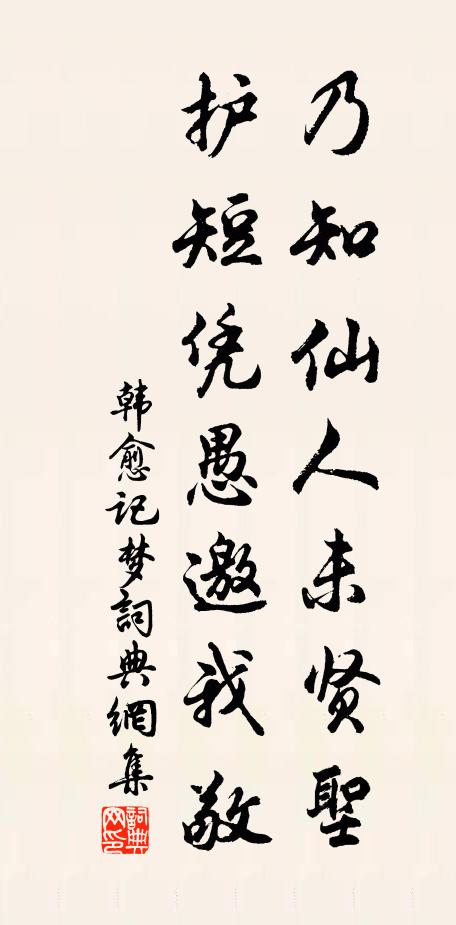 乃知仙人未贤聖
护短凭愚邀我敬
韩愈记梦詞典網集
詞典网印